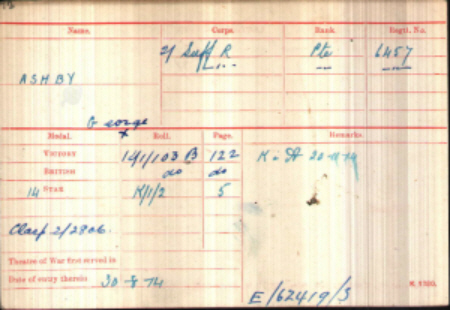 Name. Corps. Rank. Regtl. No.
2/ Suff R Pte 6457
ASHBY " "
George
x
Medal. Roll. Page. Remarks.
VICTORY 141/103 B 122 K in A 20-11-14
BRITISH do do
14 STAR K/1/2 5
Clasp 2/2806.
Theatre of War first served in
Date of entry therein 30-8-14
K 1380.
E/62419/3